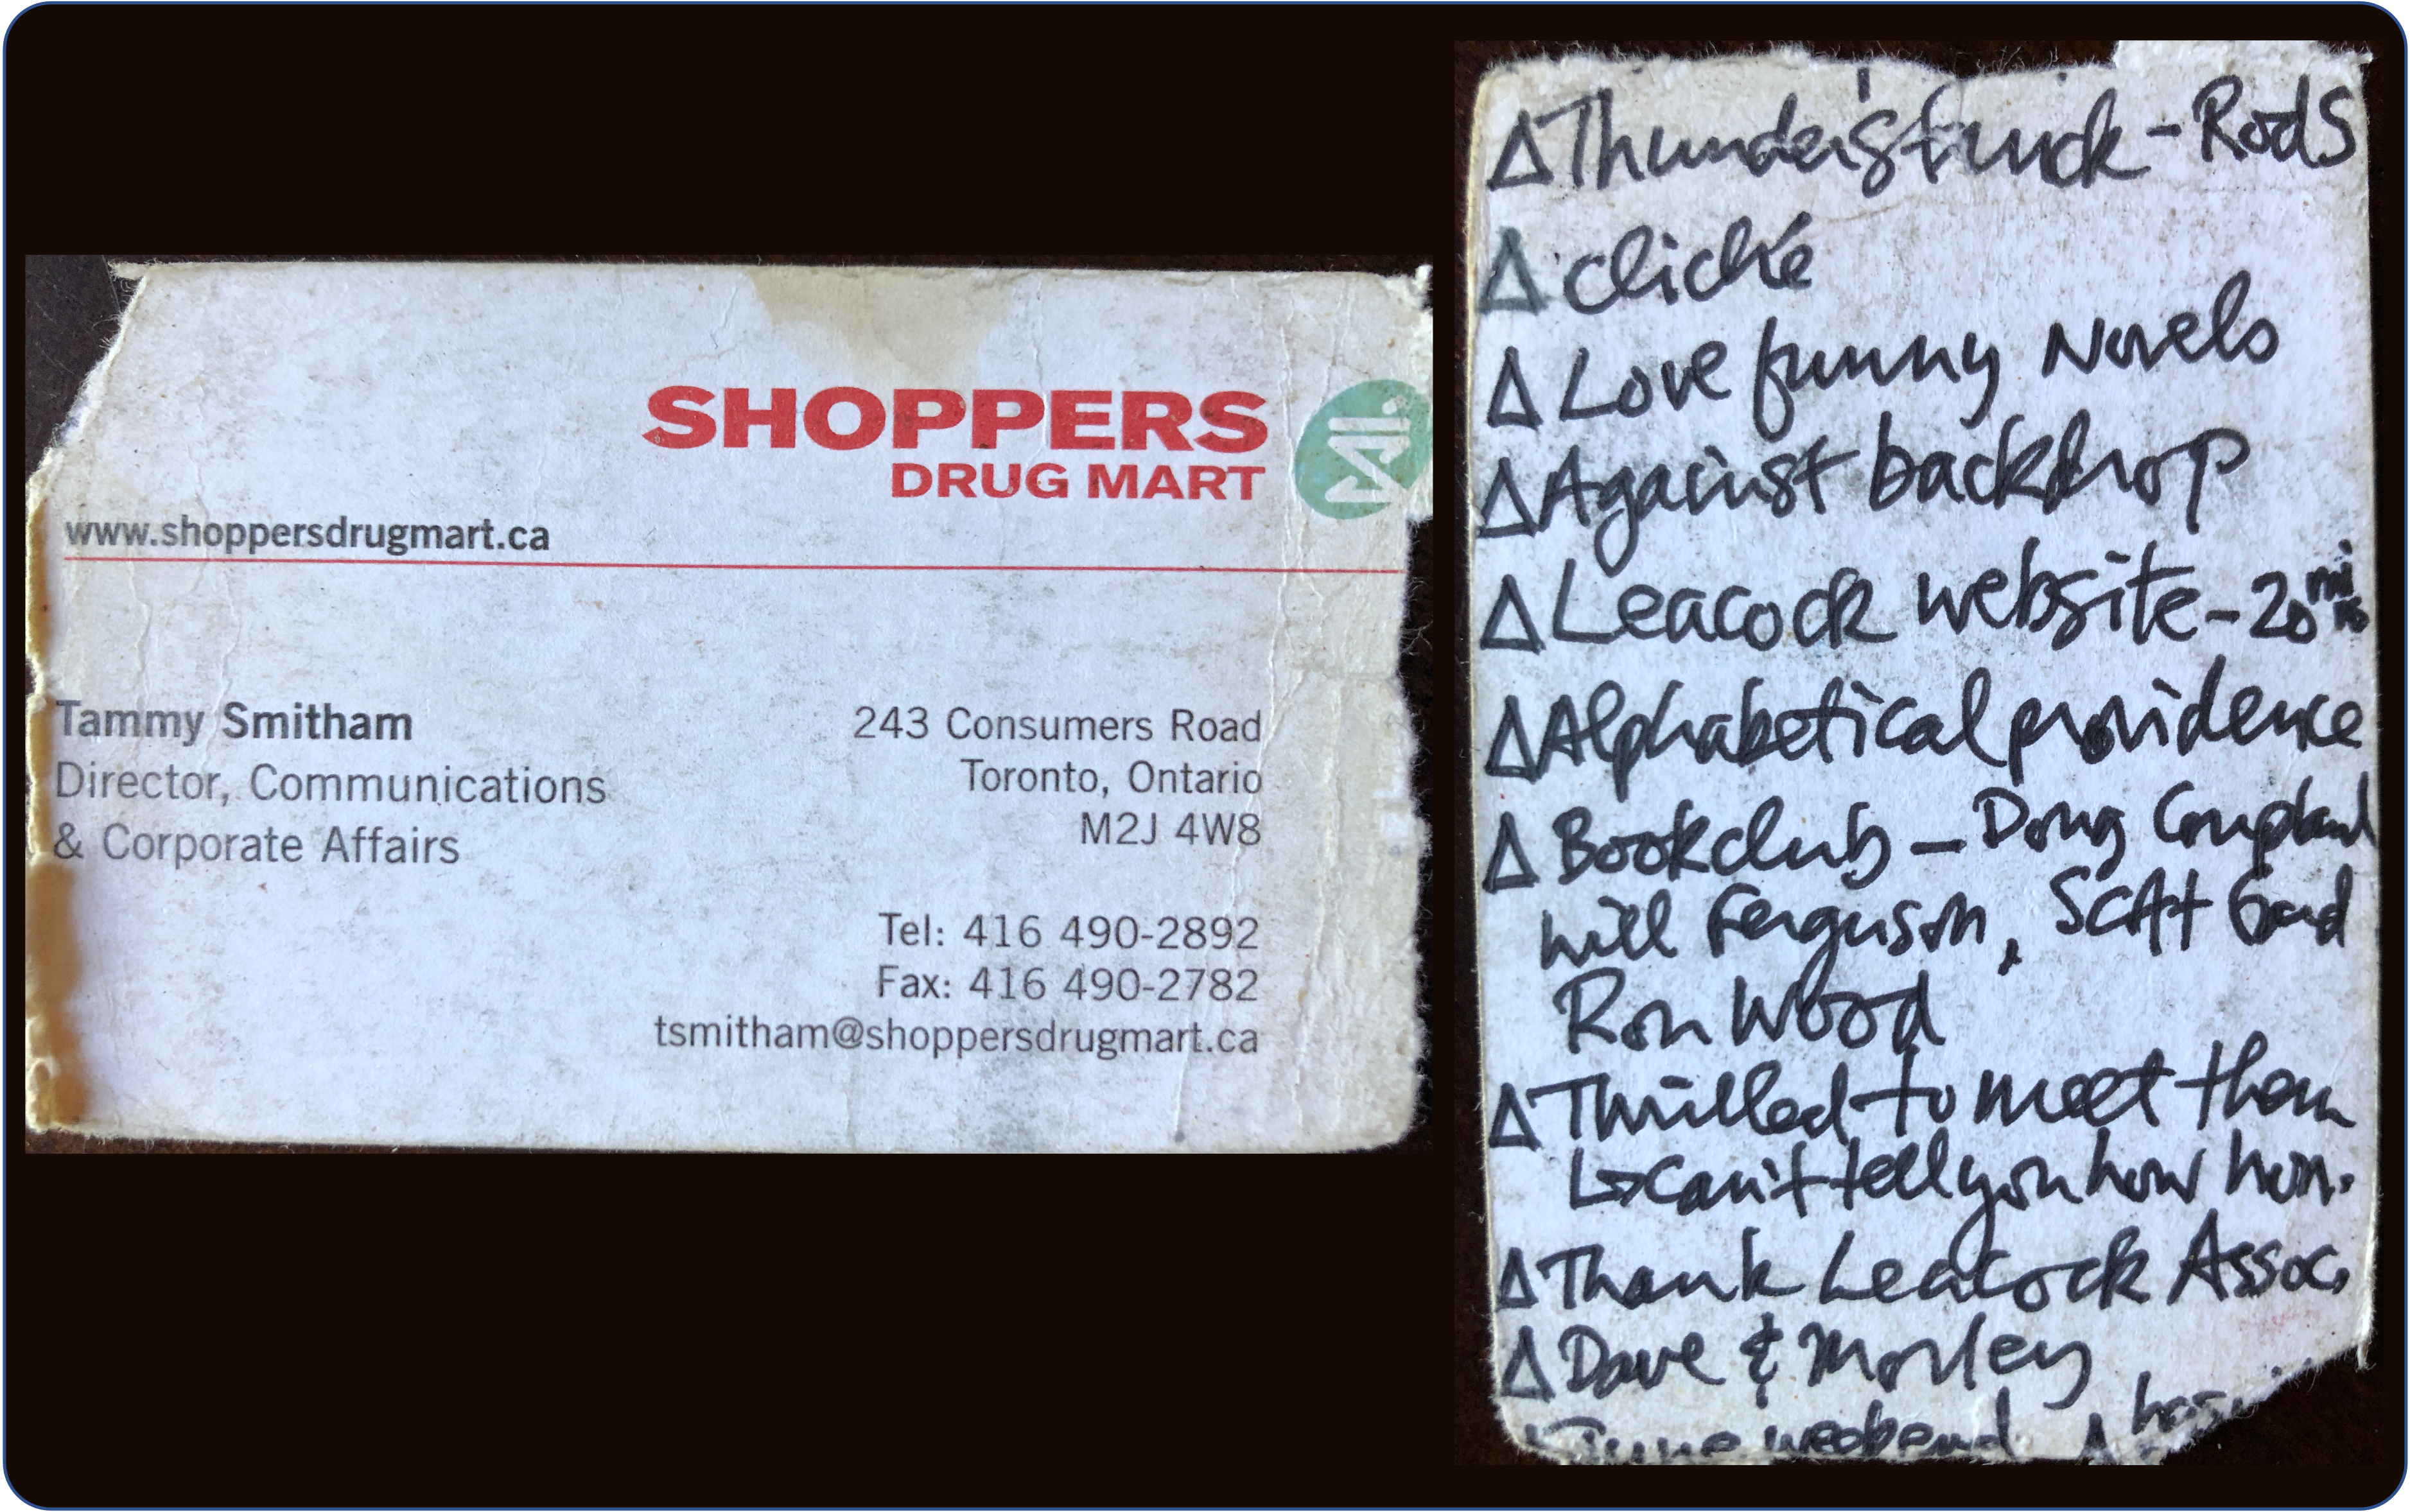 SHOPPERS
DRUG MART
www.shoppersdrugmart.ca
Tammy Smitham
Director, Communications
& Corporate Affairs
243 Consumers Road
Toronto, Ontario
M2J 4W8
Tel: 416 490-2892
Fax: 416 490-2782
tsmitham@shoppersdrugmart.ca
Δ Thunderstruck - Rods
Δ cliché
Δ Love funny Novels
Δ Against backdrop
Δ Leacock website - 20 mins
Δ Alphabetical providence
Δ Bookclub - Doug Coupland
Will Ferguson, Scott Gard
Ron Wood
Δ Thrilled to meet them
↳ can't tell you how hon.
Δ Thank Leacock Assoc.
Δ Dave & Morley
June weekend